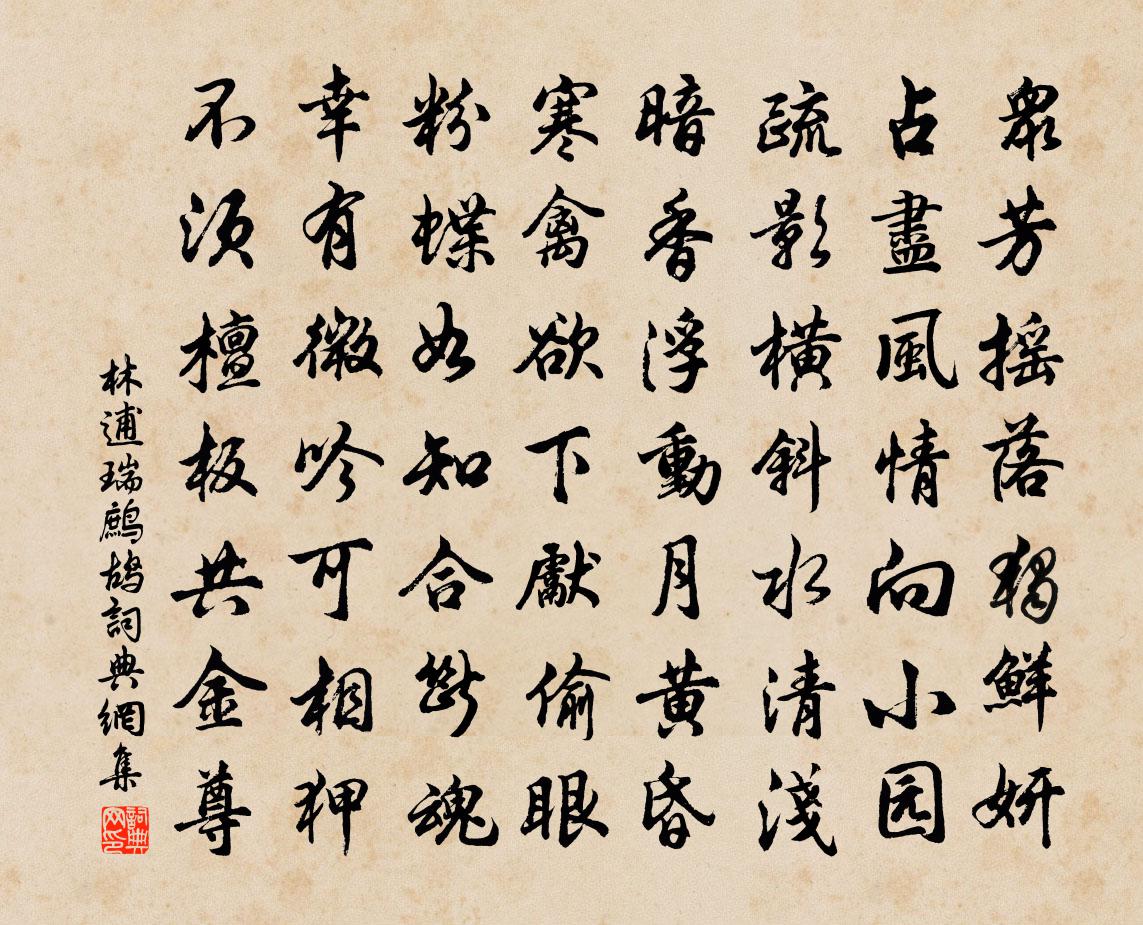 衆芳摇落獨鮮妍
占盡風情向小园
疏影橫斜水清淺
暗香浮動月黄昏
寒禽欲下獻偷眼
粉蝶如知合斷魂
幸有微吟可相狎
不須檀板共金尊
林逋瑞鷓鴣詞典網集
詞典网印